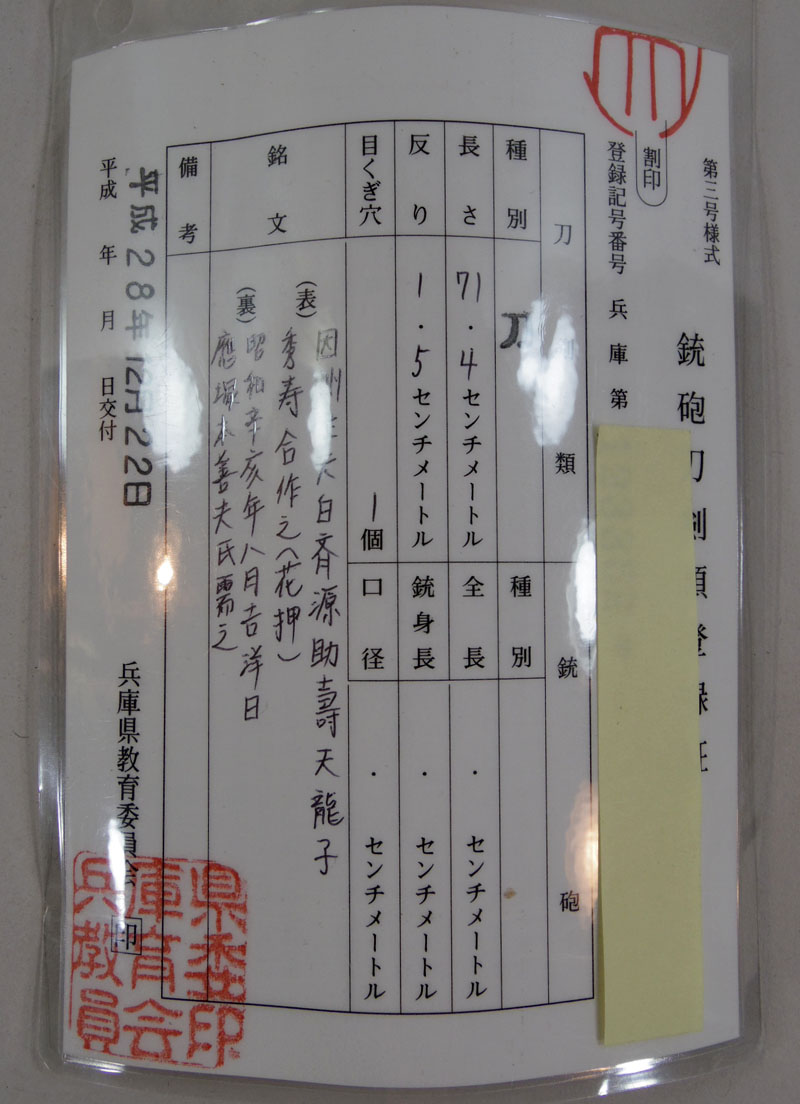 第三号様式
銃砲刀剣類登録証
割印
登録記号番号 兵庫第
刀 類
種別 刀
長さ 71.4センチメートル
反り 1.5センチメートル
目くぎ穴 1個
銘文
(表) 因州 六白斉源助壽天龍子
秀寿合作之(花押)
(裏) 昭和辛亥年八月吉洋日
應塚本善夫氏需之
備考
銃 砲
種別
全長 ・センチメートル
銃身長 ・センチメートル
口径 ・センチメートル
平成28年12月22日
平成 年 月 日交付
兵庫県教育委員会 印
兵庫県教育委員会印